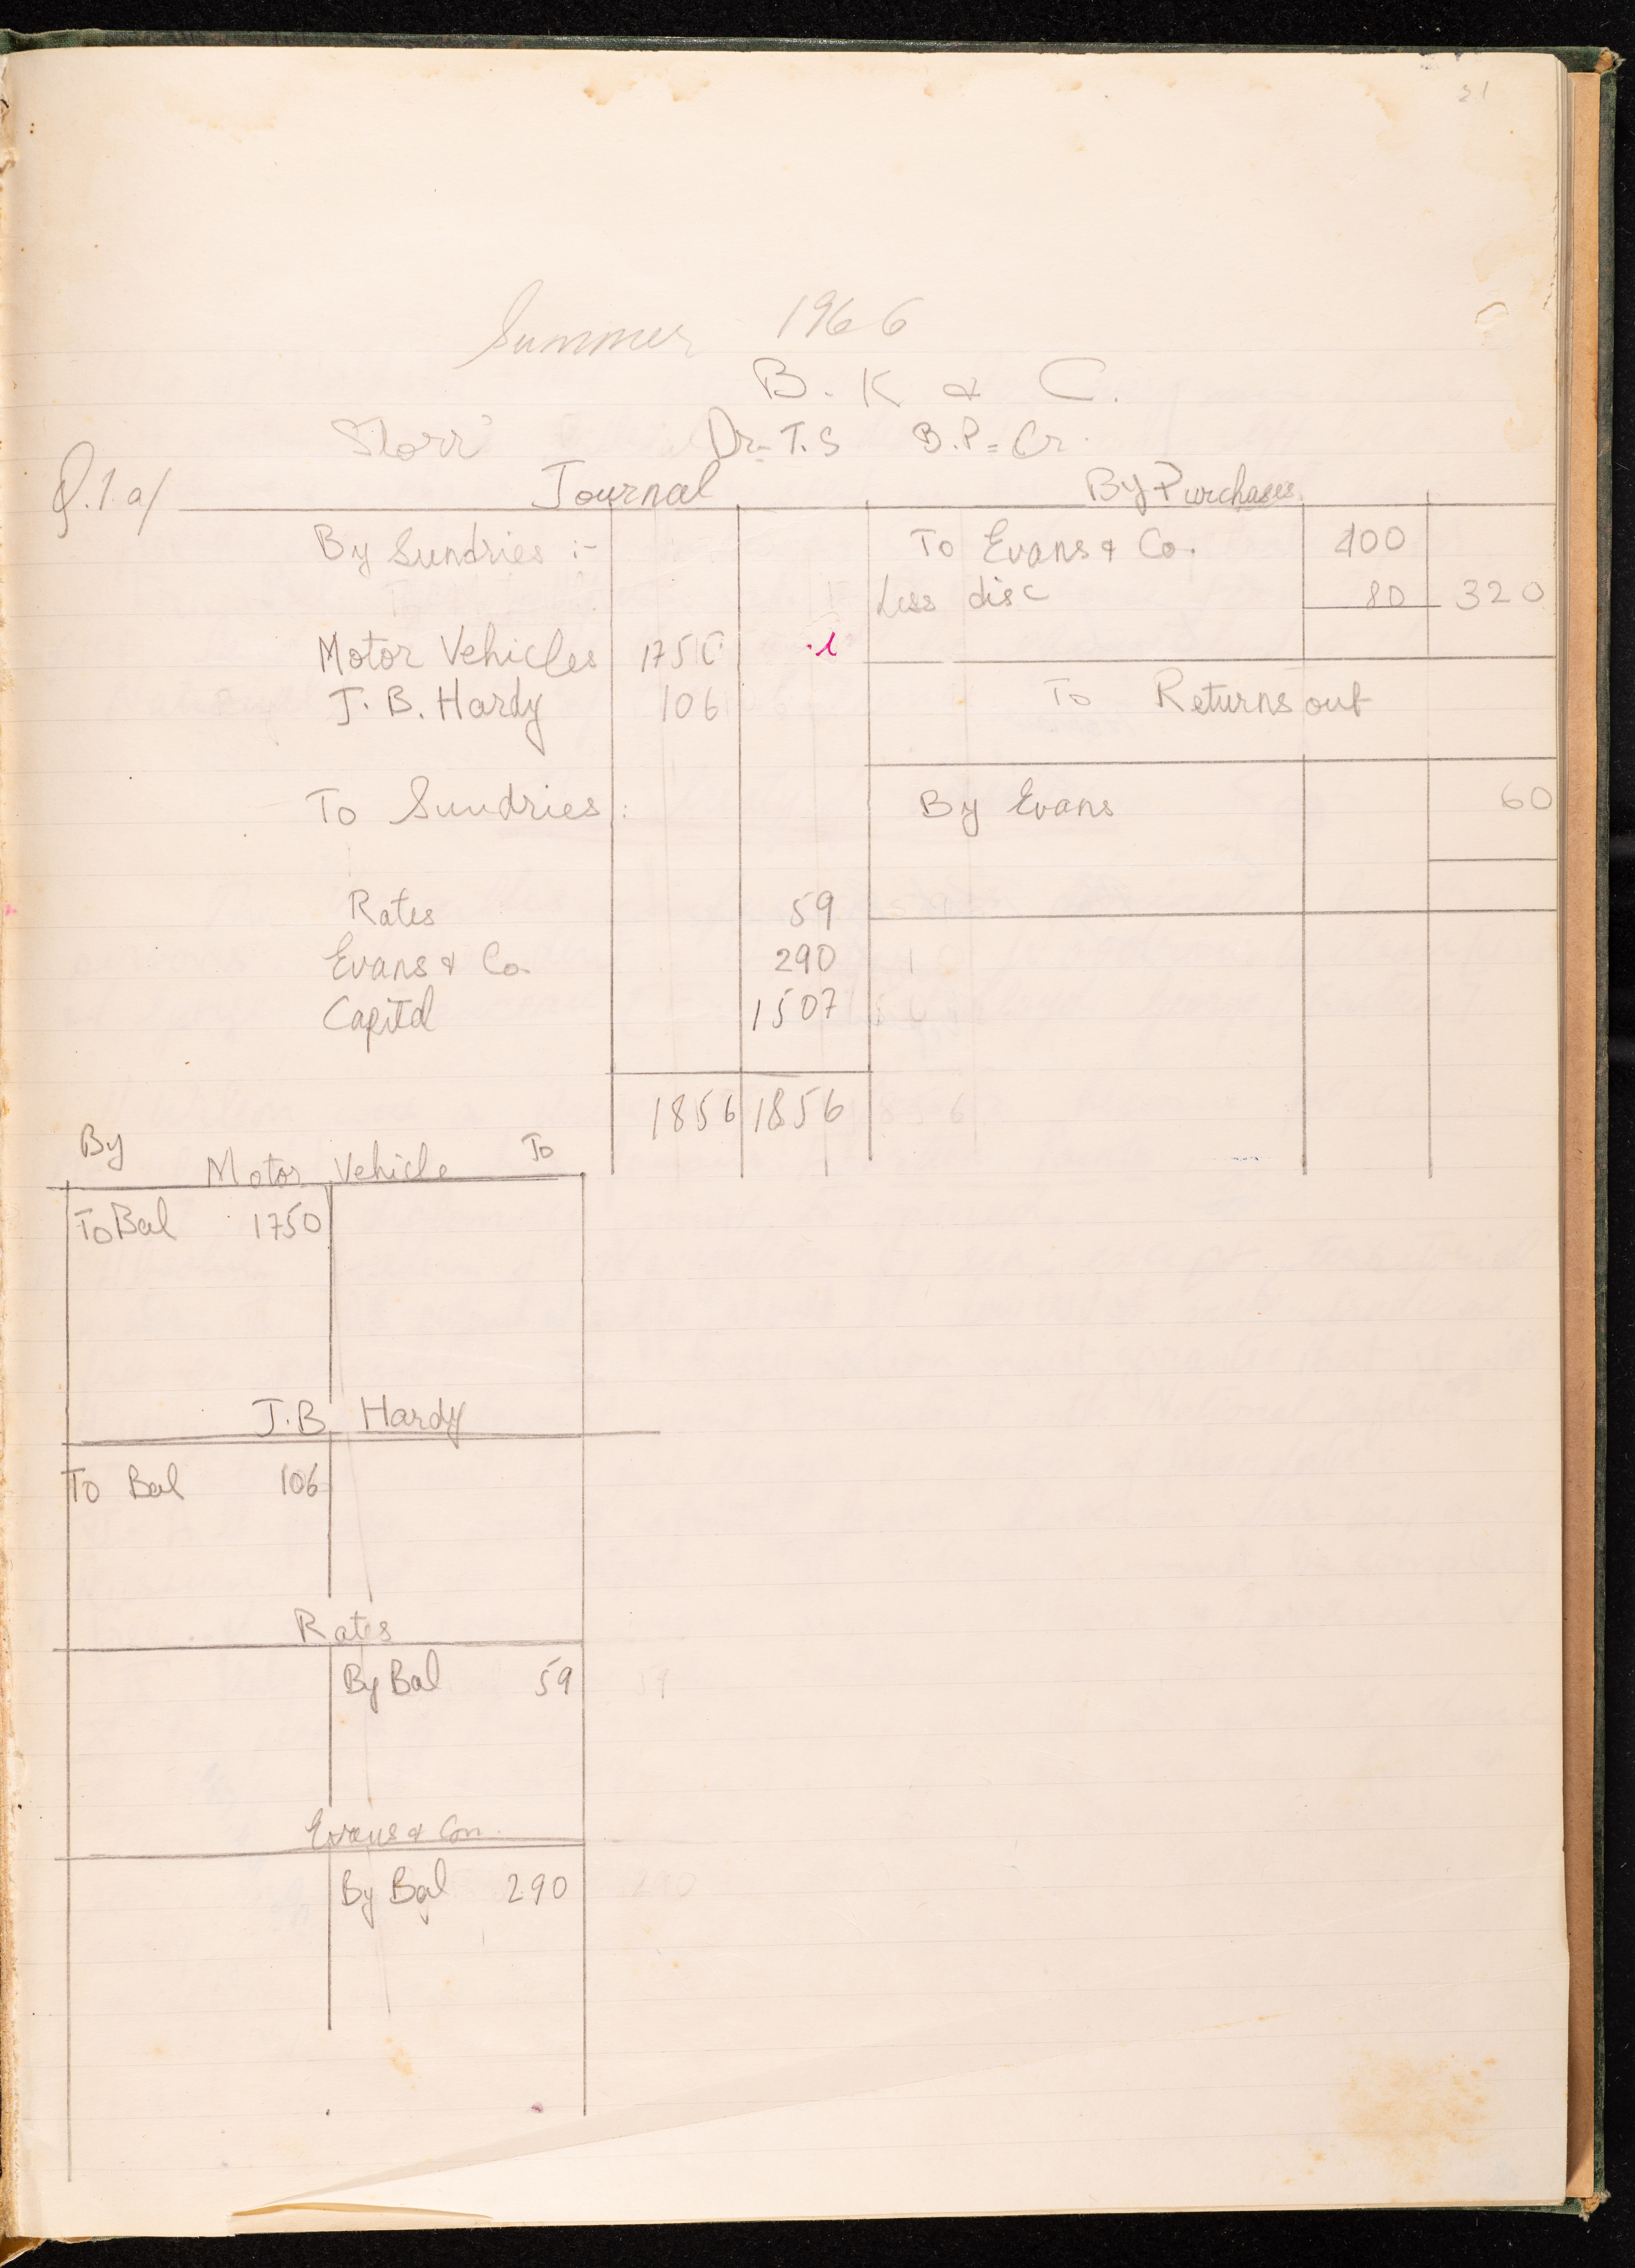 21
Summer 1966
B. K & C.
Storr Dr = T.S B.P = Cr.
Q.1.a/ Journal
By Sundries :-
Motor Vehicles 1750
J. B. Hardy 106
To Sundries :
Rates 59
Evans & Co. 290
Capital 1507
1856 1856
By Purchases.
To Evans & Co. 400
Less disc 80 320
To Returns out
By Evans 60
By Motor Vehicle To
To Bal 1750
J.B Hardy
To Bal 106
Rates
By Bal 59
Evans & Con.
By Bal 290